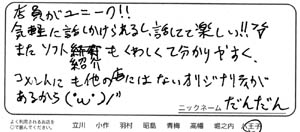 店員がユニーク!!
気軽に話しかけられるし、話してて楽しい!!
またソフト紹介もくわしくて分かりやすく、
コメントにも他の店にはないオリジナリティが
あるから(´ω`)ノ
ニックネーム だんだん
よく利用されるお店を
○で囲んでください。
立川 小作 羽村 昭島 青梅 高幡 堀之内 八王子